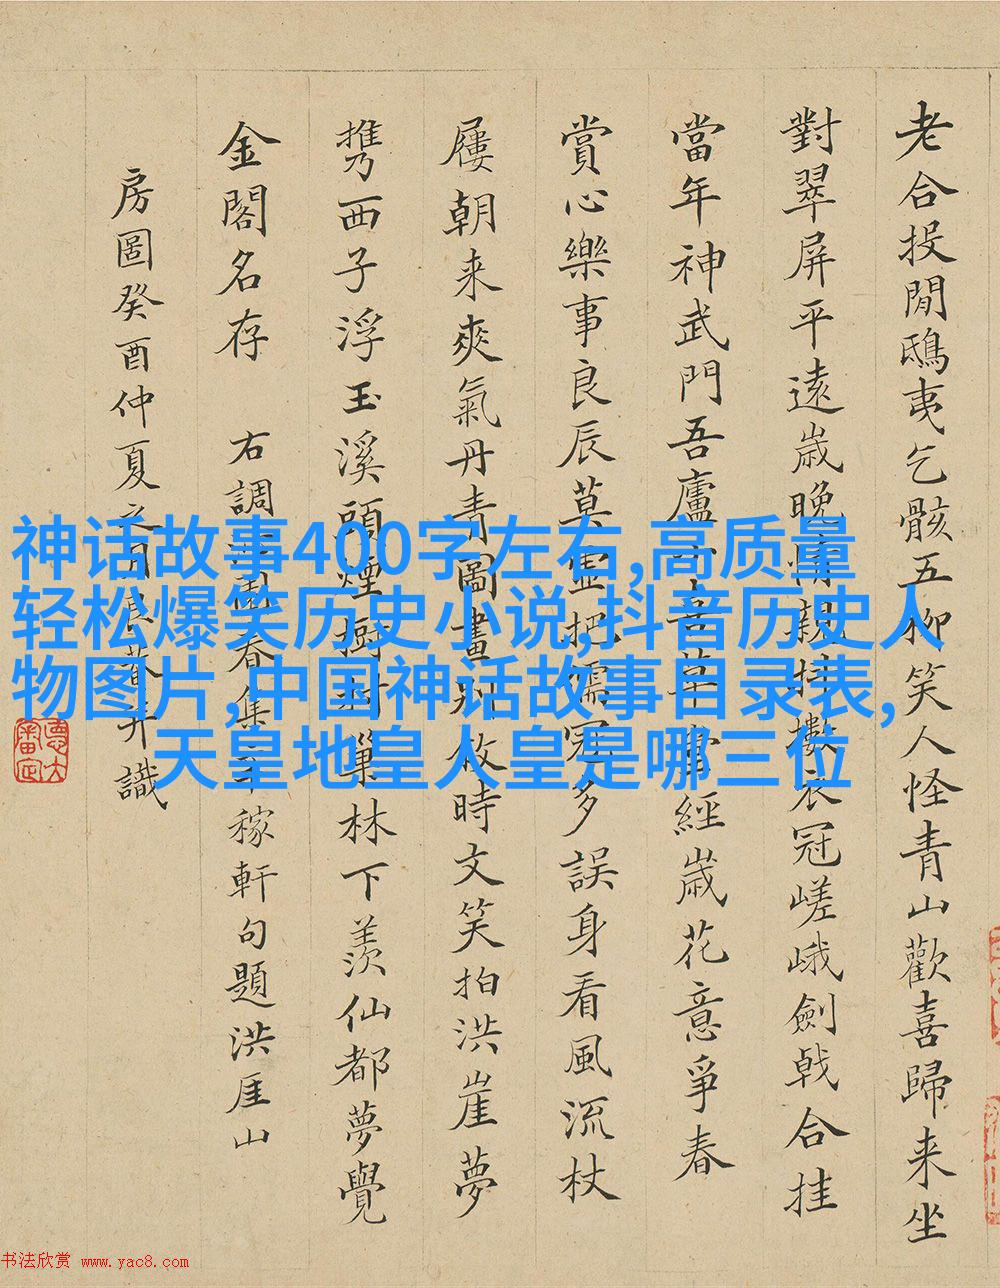 老合投閒鴟夷乞骸五柳笑人怪青山歡喜歸来坐
對翠屏平遠歲晚情親衣冠嵯峨劍戟合挂
當年神武門吾廬小吾草堂經歲花意爭春
賞心樂事良辰莫把儒冠多誤身看風流杖
屨朝来爽氣丹青圖畫別時文笑拍洪崖夢
携西子浮玉溪頭煙樹巢林下羨仙都夢覺
金閣名存 右調園春集稼軒句題洪厓山
房圖癸酉仲夏之月弁識
神话故事400字左右,高质量
轻松爆笑历史小说,抖音历史人
物图片,中国神话故事目录表,
天皇地皇人皇是哪三位
书法欣赏 www.yac8.com